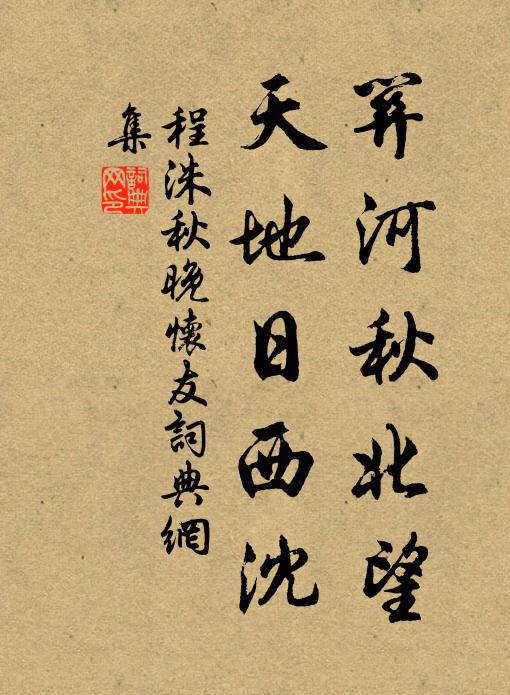 关河秋北望
天地日西沈
程洙秋晚懷友詞典網
集
詞典
网印